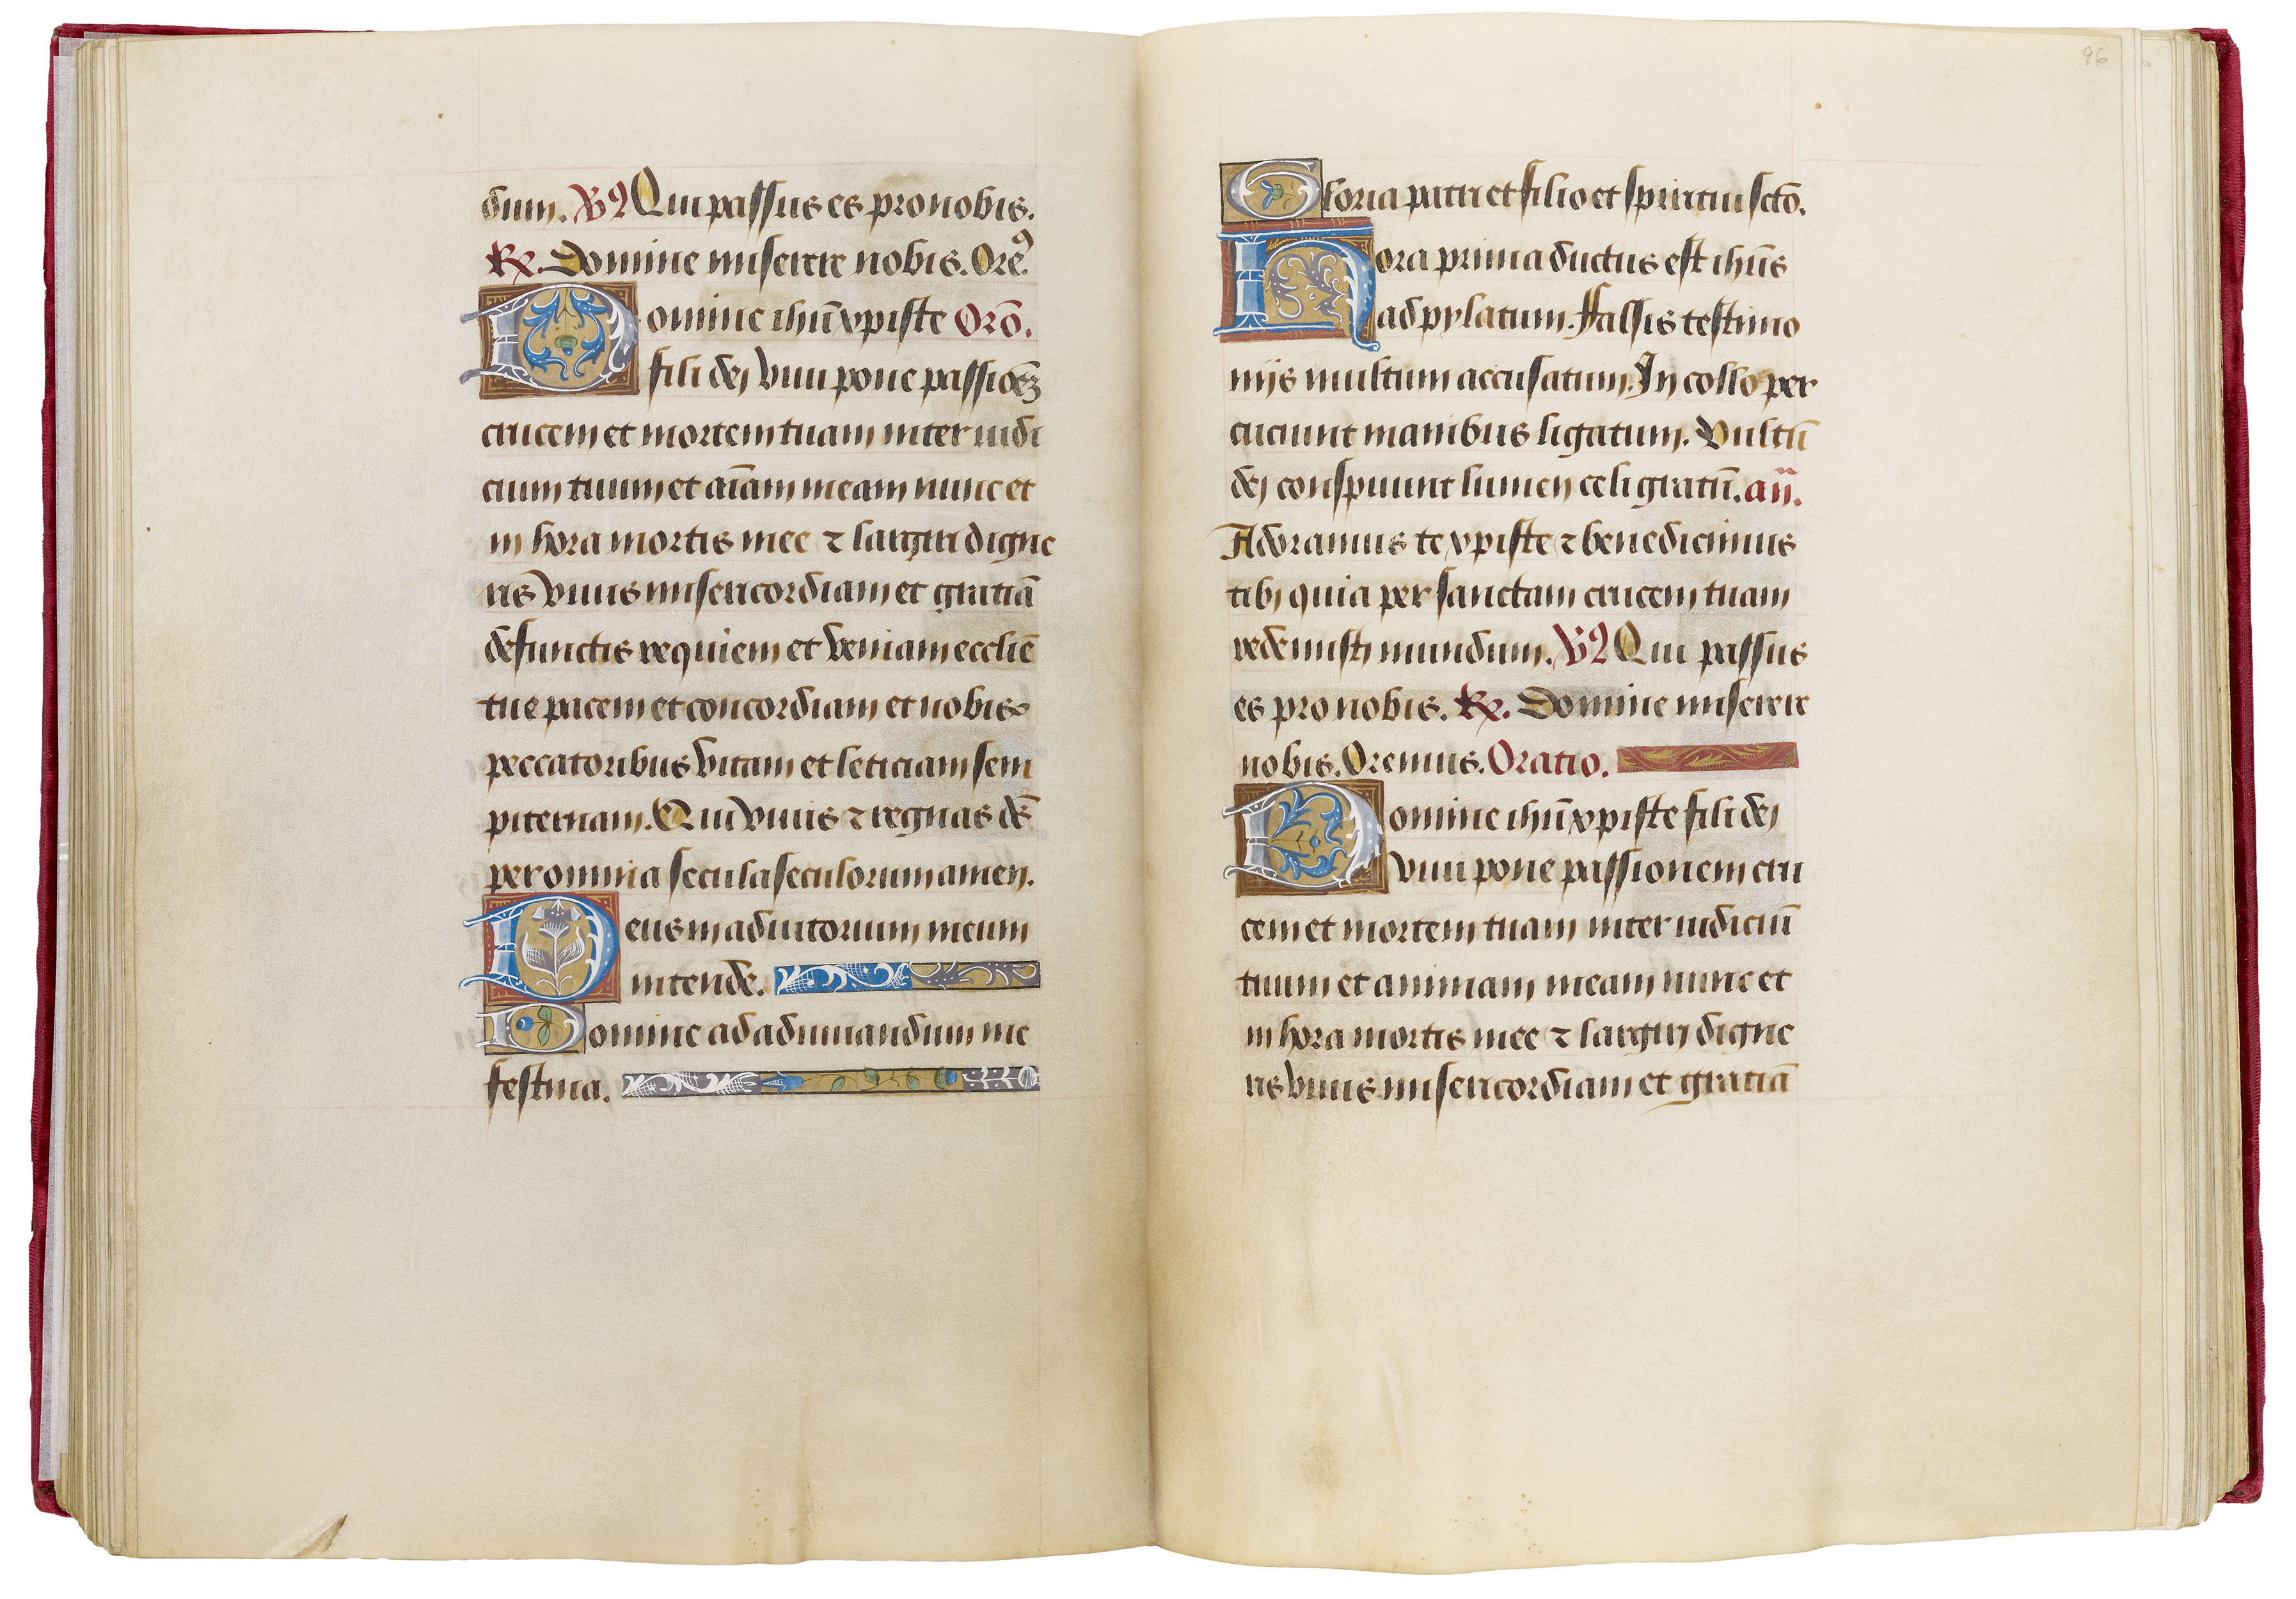 dum. V9 Qui passus es pro nobis.
R. Domine miserere nobis. Orē9.
Domine ihū xpiste Orō.
fili dei vivi pone passiōez
crucem et mortem tuam inter iudi
cium tuum et aīam meam nunc et
in hora mortis mee ⁊ largiri digne
ris vivis misericordiam et gratiā
defunctis requiem et veniam ecclīe
tue pacem et concordiam et nobis
peccatoribus vitam et leticiam sem
piternam. Qui vivis ⁊ regnas dē
per omnia secula seculorum amen.
Deus in adiutorium meum
intende.
Domine ad adiuuandum me
festina.
96
Gloria patri et filio et spiritui sctō.
Hora prima ductus est ihūs
ad pylatum. Falsis testimo
niis multum accusatum. In collo per
cuciunt manibus ligatum. Vultū
dei conspuunt lumen celi gratū. añ.
Adoramus te xpiste ⁊ benedicimus
tibi quia per sanctam crucem tuam
redemisti mundum. V9 Qui passus
es pro nobis. R. Domine miserere
nobis. Oremus. Oratio.
Domine ihū xpiste fili dei
vivi pone passionem cru
cem et mortem tuam inter iudiciū
tuum et animam meam nunc et
in hora mortis mee ⁊ largiri digne
ris vivis misericordiam et gratiā